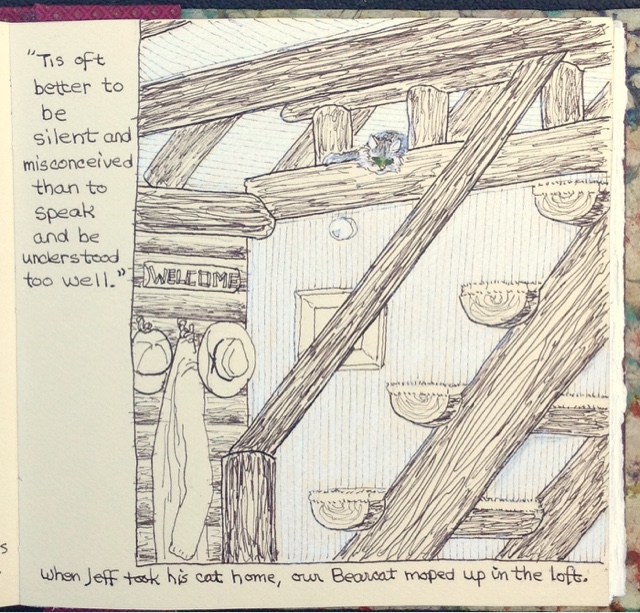 "Tis oft
better to
be
silent and
misconceived
than to
speak
and be
understood
too well."
WELCOME
When Jeff took his cat home, our Bearcat moped up in the loft.